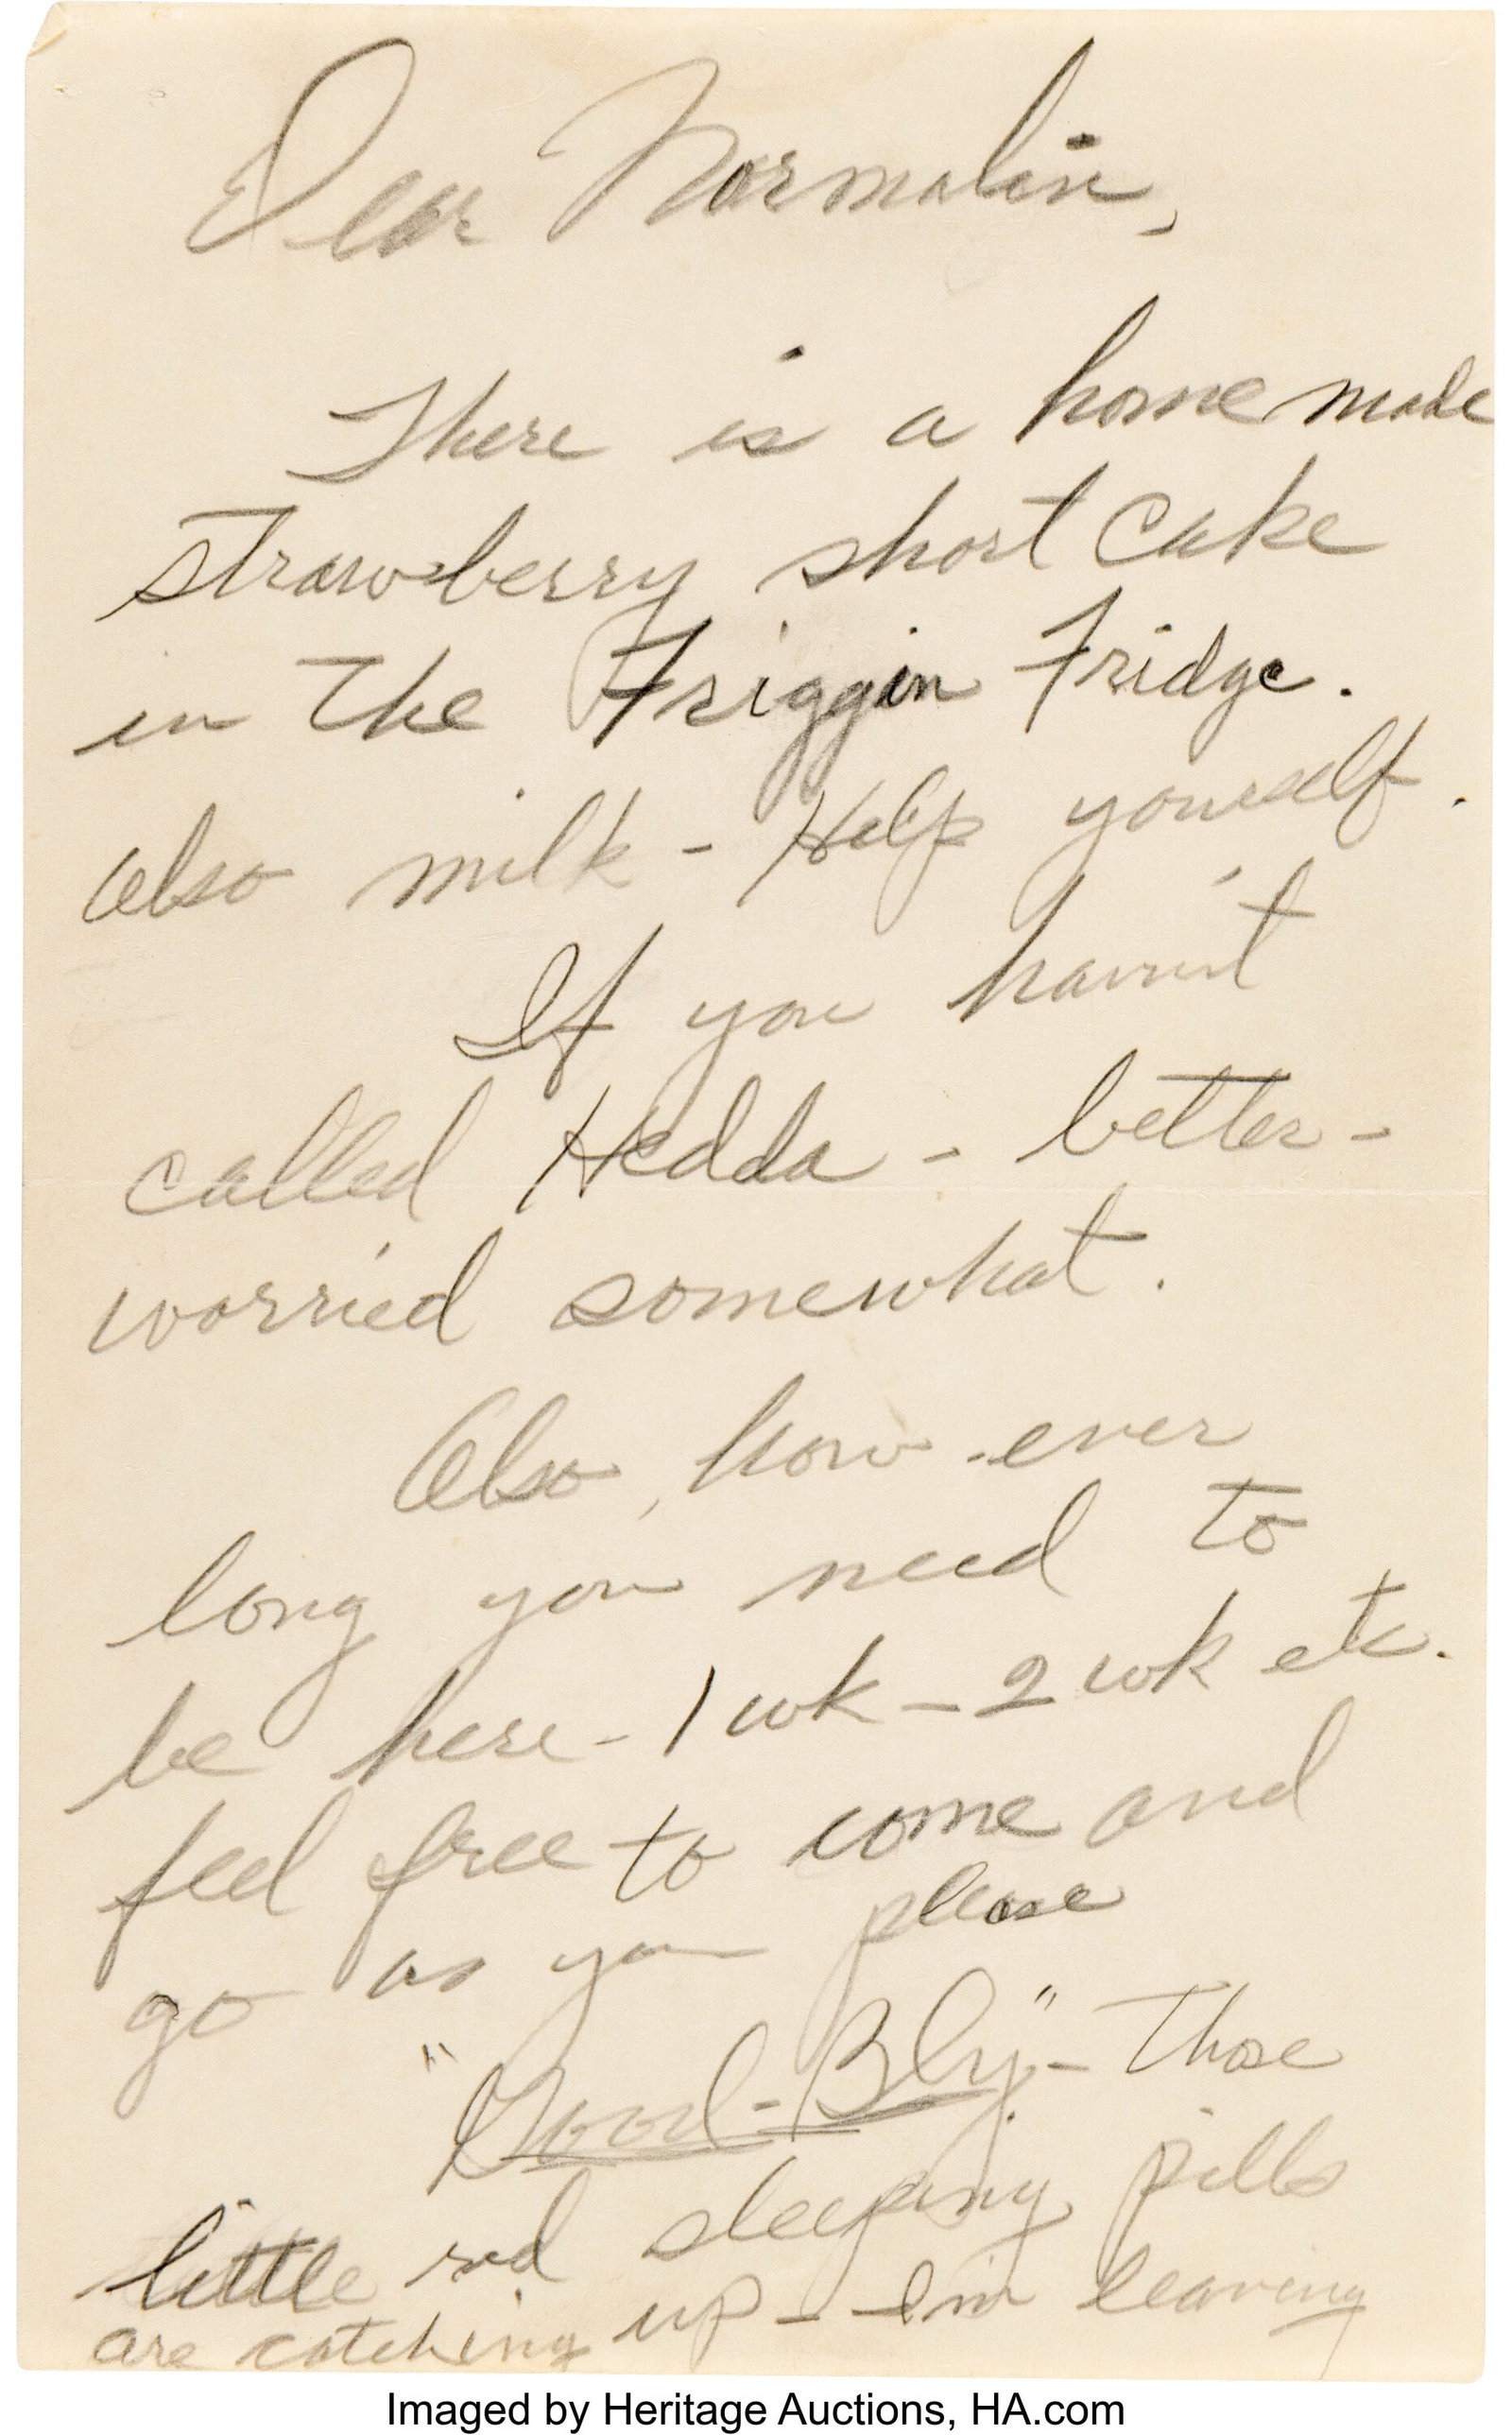 Dear Normalin,
There is a home made
strawberry short cake
in the Friggin Fridge.
Also milk - Help yourself.
If you haven't
called Hedda - better -
worried somewhat.
Also, how-ever
long you need to
be here - 1 wk - 2 wk etc.
feel free to come and
go as you please
"Good-Bly" - Those
little red sleeping pills
are catching up - I'm leaving
Imaged by Heritage Auctions, HA.com